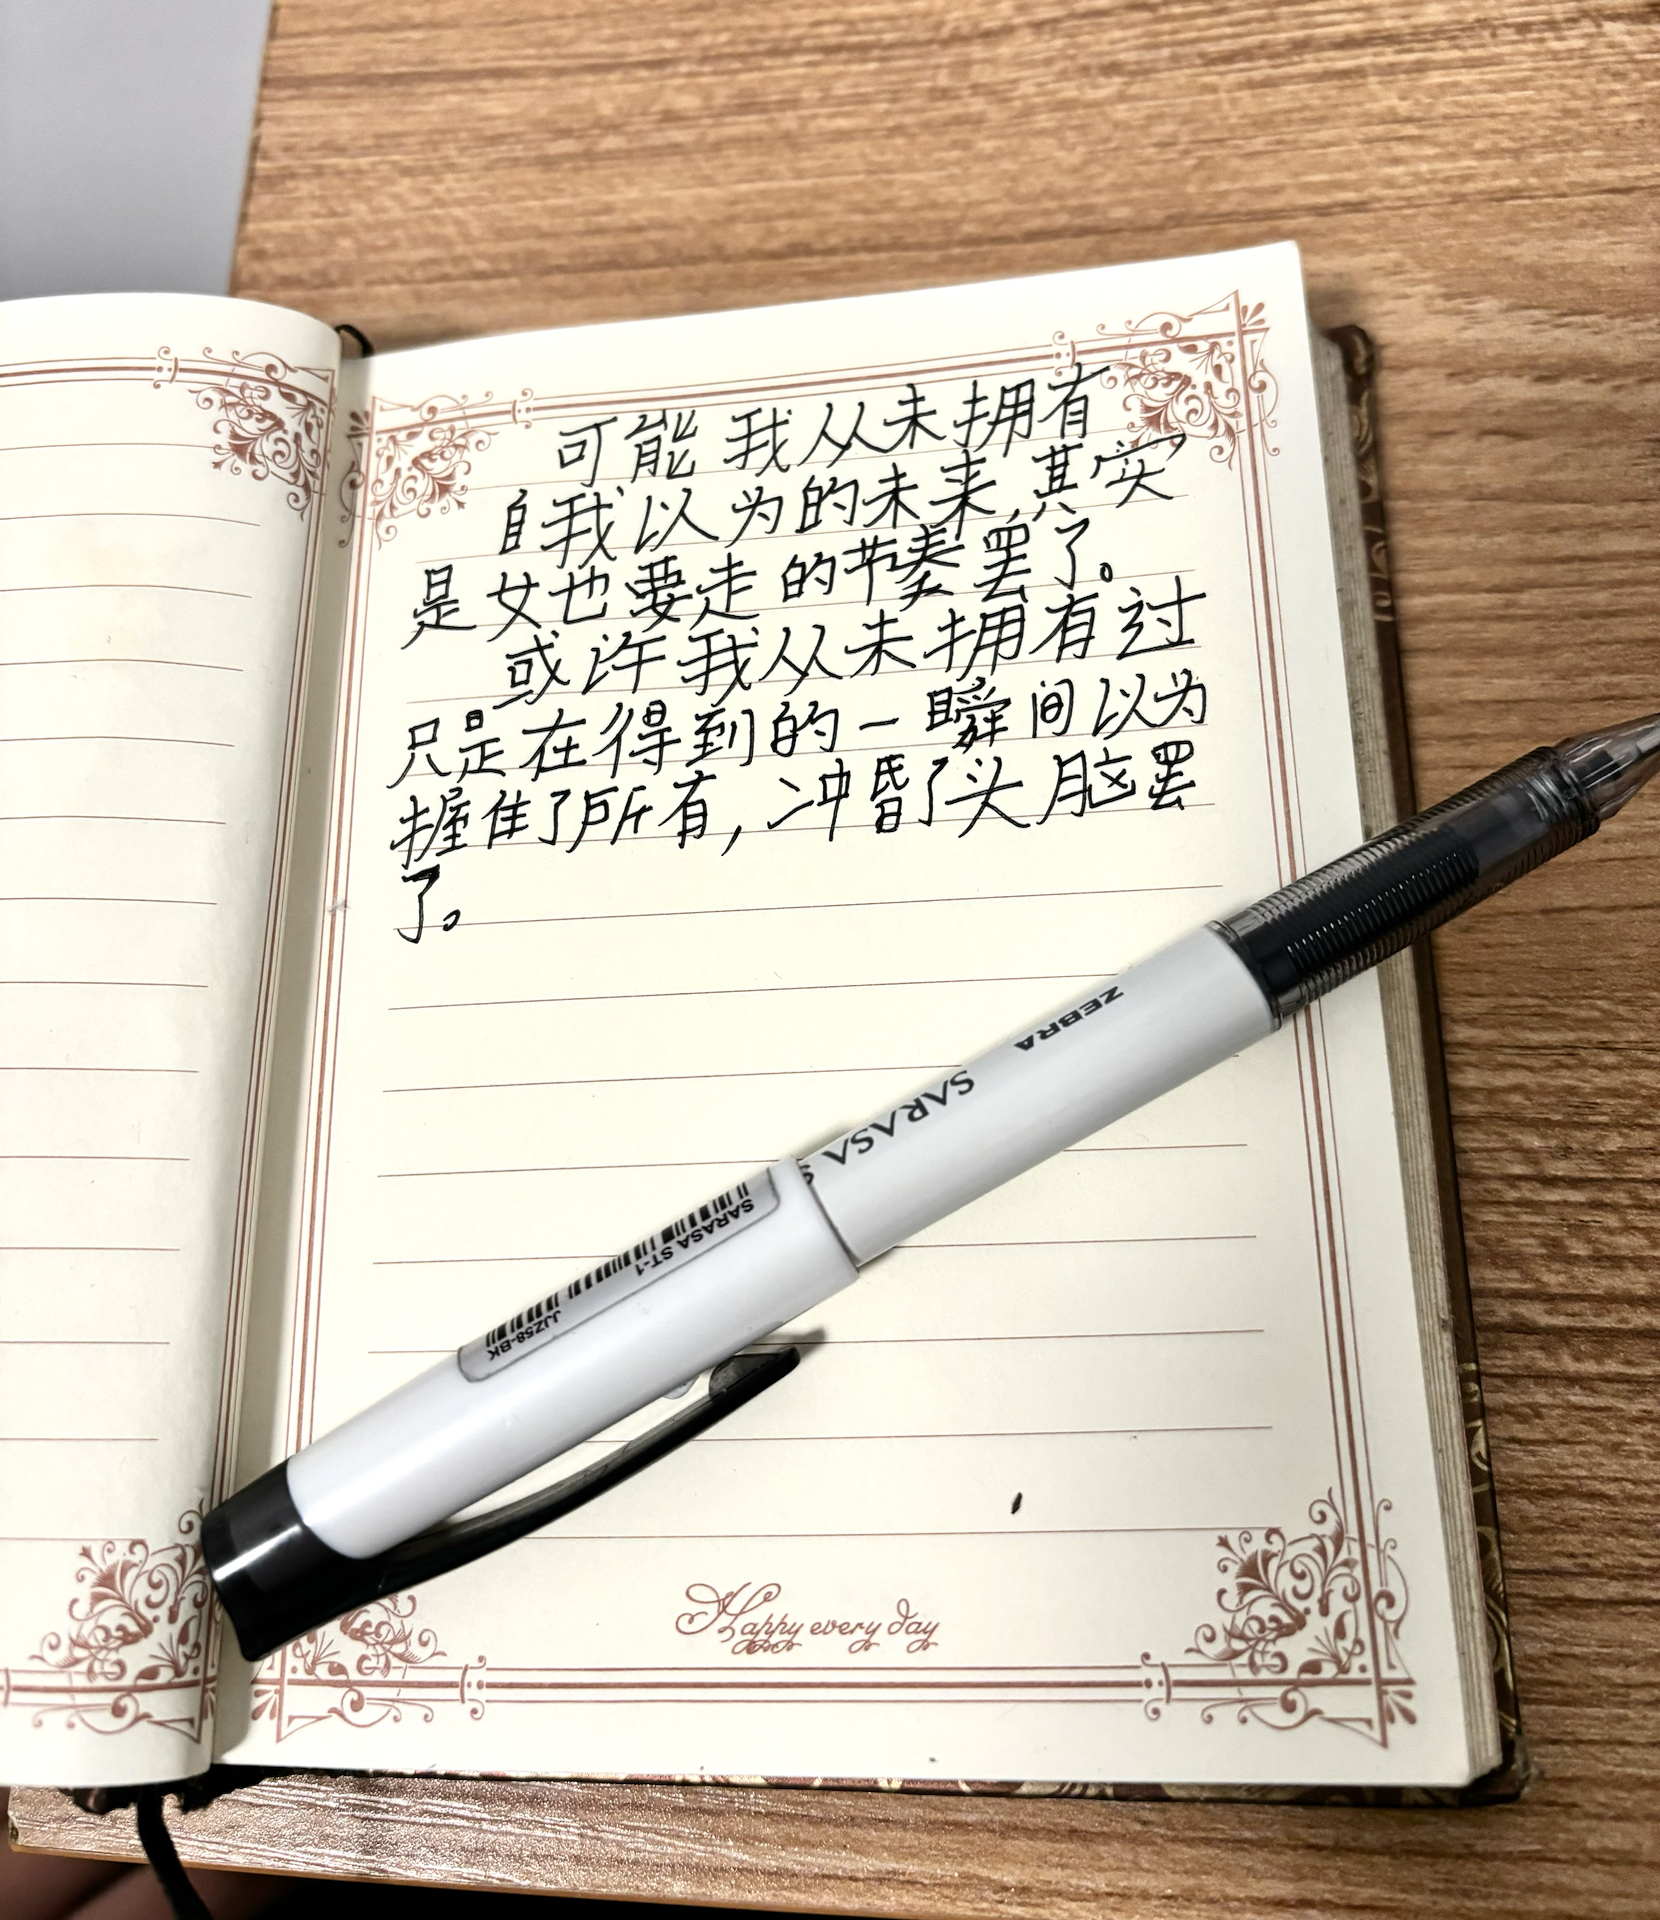 可能我从未拥有
自我以为的未来,其实
是女也要走的节奏罢了。
或许我从未拥有过
只是在得到的一瞬间以为
握住了所有,冲昏了头脑罢
了。
ZEBRA
SARASA S
SARASA ST-1
JJZ58-BK
Happy every day